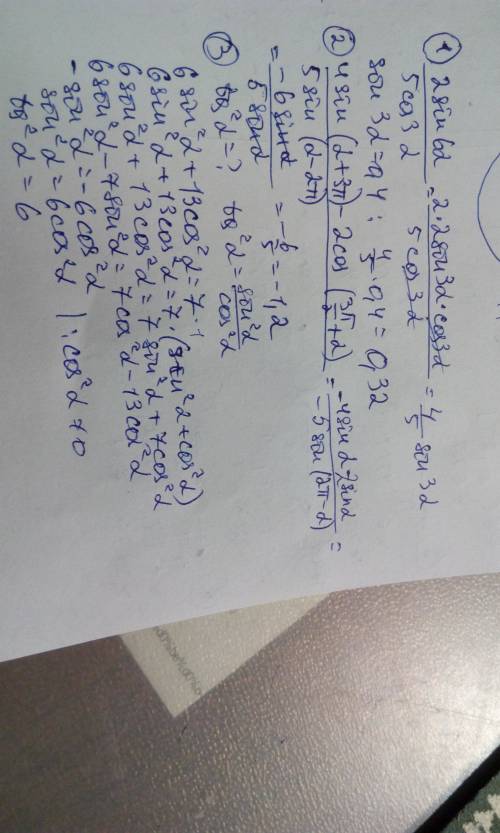 ① 2sin6α / 5cos3α = 2·2sin3α·cos3α / 5cos3α = 4/5 sin3α
sin3α=0,4 ; 4/5·0,4=0,32
② 4sin(α+3π)-2cos(3π/2+α) / 5sin(α-2π) = -4sinα-2sinα / -5sin(2π-α) =
= -6sinα / 5sinα = -6/5 = -1,2
③ tg²α=? tg²α= sin²α / cos²α
6sin²α+13cos²α=7·1
6sin²α+13cos²α=7·(sin²α+cos²α)
6sin²α+13cos²α=7sin²α+7cos²α
6sin²α-7sin²α=7cos²α-13cos²α
-sin²α=-6cos²α
sin²α=6cos²α |:cos²α≠0
tg²α=6